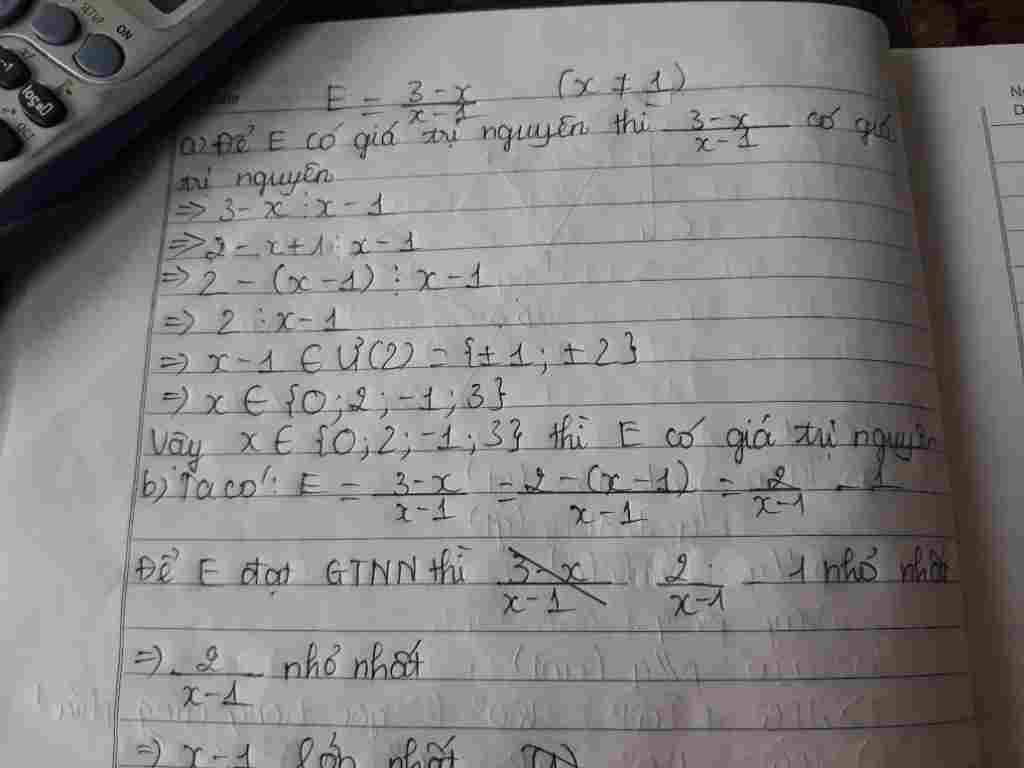 SETUP
ON
log□
E = 3-x/x-1 (x ≠ 1)
a) Để E có giá trị nguyên thì 3-x/x-1 có giá
trị nguyên
=> 3-x ⋮ x-1
=> 2-x+1 ⋮ x-1
=> 2-(x-1) ⋮ x-1
=> 2 ⋮ x-1
=> x-1 ∈ Ư(2) = {±1; ±2}
=> x ∈ {0; 2; -1; 3}
Vậy x ∈ {0; 2; -1; 3} thì E có giá trị nguyên
b) Ta có: E = 3-x/x-1 = 2-(x-1)/x-1 = 2/x-1 - 1
Để E đạt GTNN thì 3-x/x-1 2/x-1 - 1 nhỏ nhất
=> 2/x-1 nhỏ nhất
=> x-1 lớn nhất